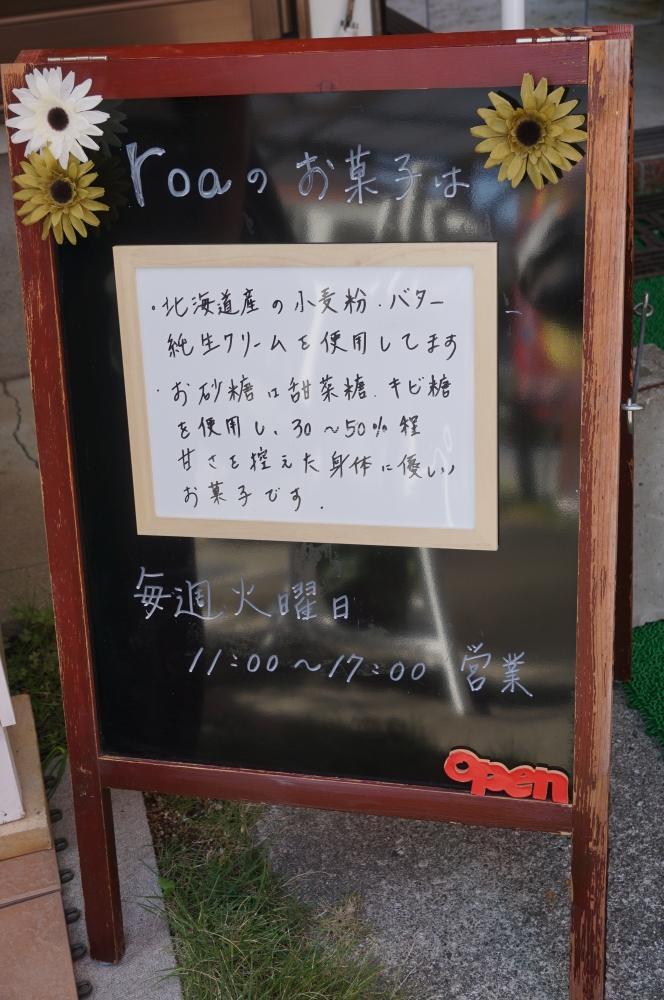 roaのお菓子は
・北海道産の小麦粉.バター
純生クリームを使用してます
・お砂糖は甜菜糖.キビ糖
を使用し、30～50%程
甘さを控えた身体に優しい
お菓子です.
毎週火曜日
11:00～17:00 営業
open